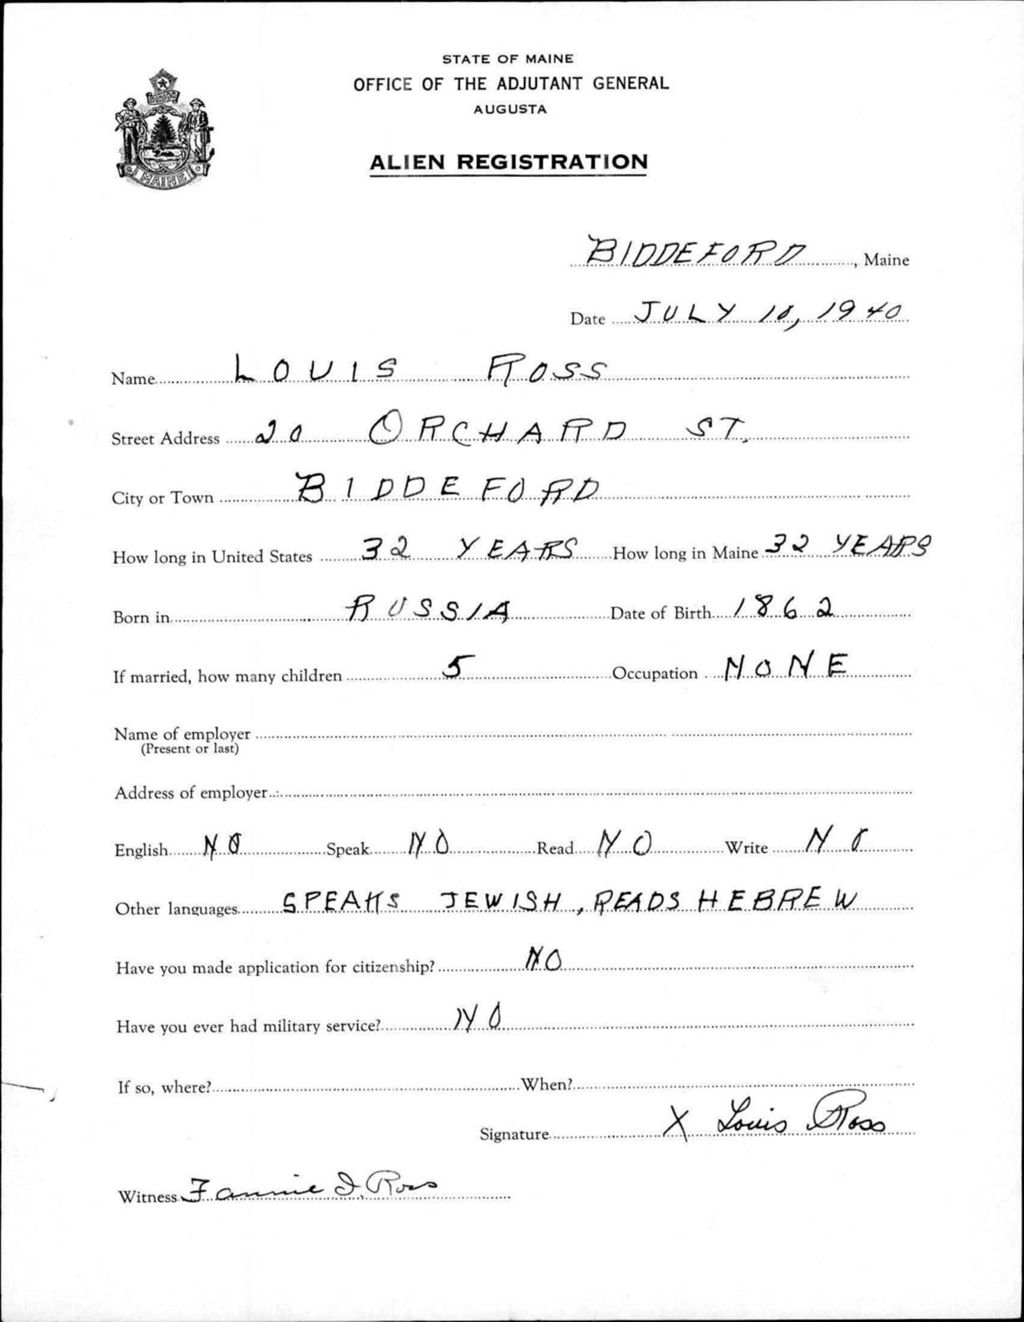 STATE OF MAINE
OFFICE OF THE ADJUTANT GENERAL
AUGUSTA
ALIEN REGISTRATION
MAINE
BIDDEFORD, Maine
Date JULY 10, 1940
Name LOUIS ROSS
Street Address 20 ORCHARD ST.
City or Town BIDDEFORD
How long in United States 32 YEARS How long in Maine 32 YEARS
Born in RUSSIA Date of Birth 1862
If married, how many children 5 Occupation NONE
Name of employer
(Present or last)
Address of employer
English NO Speak NO Read NO Write NO
Other languages SPEAKS JEWISH, READS HEBREW
Have you made application for citizenship? NO
Have you ever had military service? NO
If so, where? When?
Signature X Louis Ross
Witness Fannie I. Ross